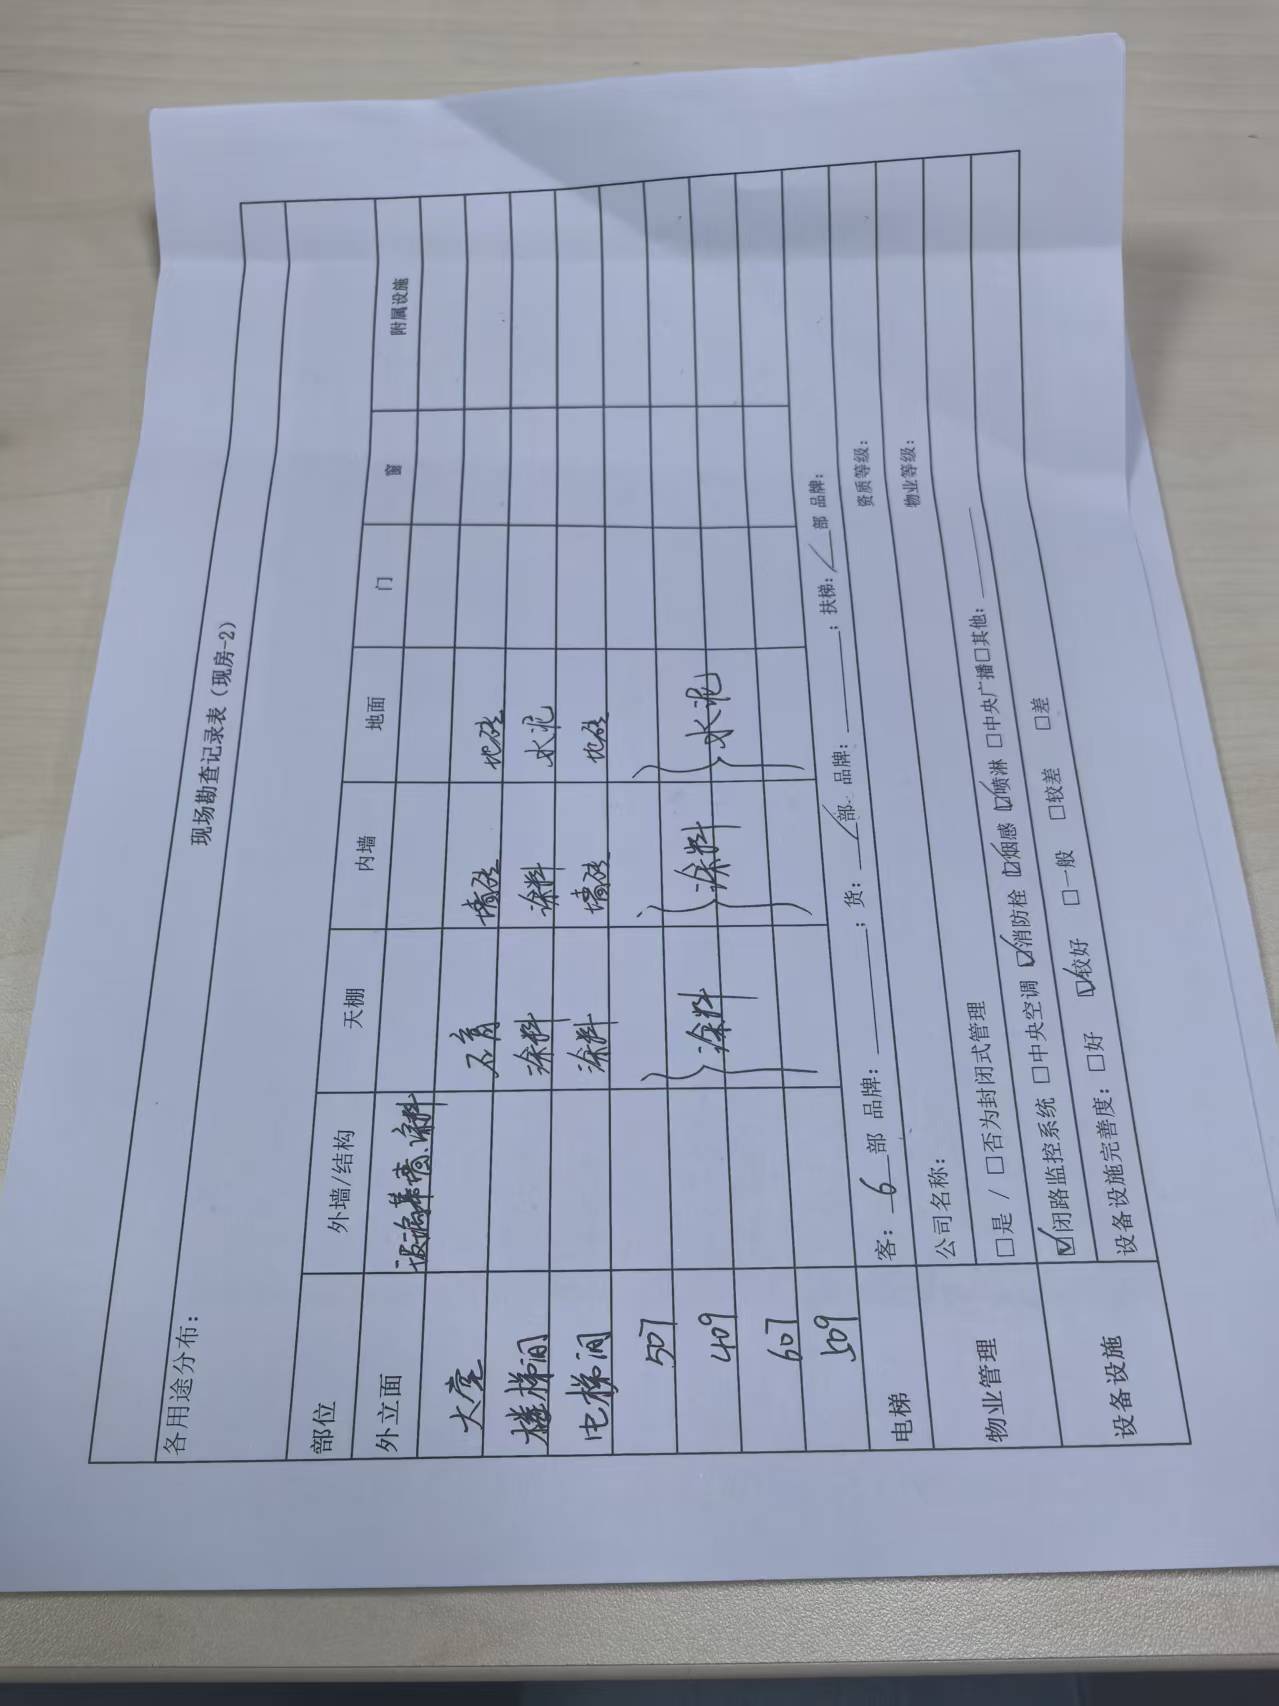 现场勘查记录表（现房-2）
各用途分布：
部位 外墙/结构 天棚 内墙 地面 门 窗 附属设施
外立面 玻璃幕墙、涂料
大堂 石膏 墙砖 地砖
楼梯间 涂料 涂料 水泥
电梯间 涂料 墙砖 地砖
507
409 涂料 涂料 水泥
607
509
电梯 客：6部 品牌：______；货：/部 品牌：______；扶梯：/部 品牌：
物业管理 公司名称： 资质等级：
□是 / □否为封闭式管理 物业等级：
设备设施 ☑闭路监控系统 □中央空调 ☑消防栓 ☑烟感 ☑喷淋 □中央广播□其他：______
设备设施完善度：□好 ☑较好 □一般 □较差 □差